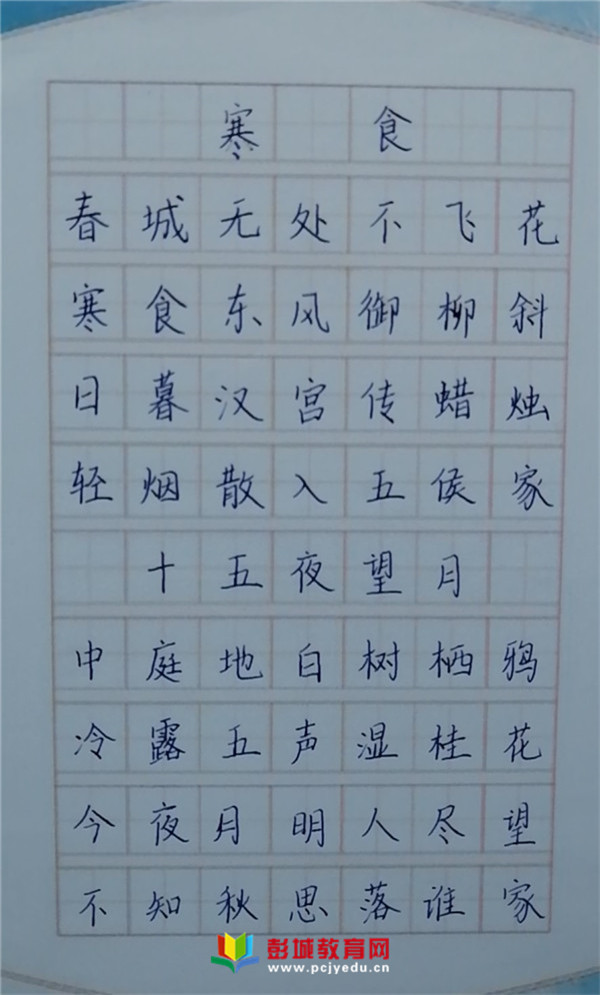 寒食
春城无处不飞花
寒食东风御柳斜
日暮汉宫传蜡烛
轻烟散入五侯家
十五夜望月
中庭地白树栖鸦
冷露五声湿桂花
今夜月明人尽望
不知秋思落谁家
彭城教育网
www.pcjyedu.cn